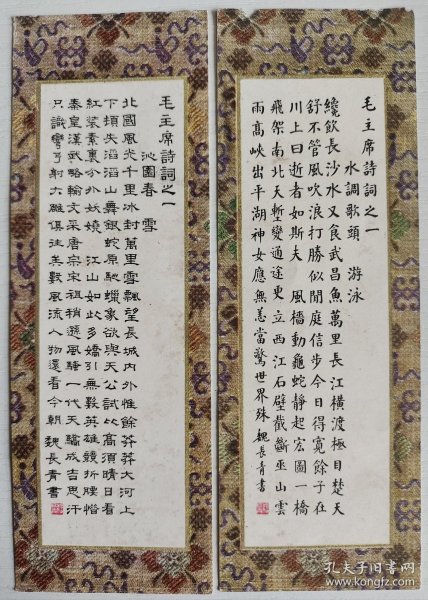 毛主席詩詞之一
水調歌頭 游泳
纔飲長沙水又食武昌魚萬里長江橫渡極目楚天
舒不管風吹浪打勝似閒庭信步今日得寬餘子在
川上曰逝者如斯夫 風檣動龜蛇靜起宏圖一橋
飛架南北天塹變通途更立西江石壁截斷巫山雲
雨高峽出平湖神女應無恙當驚世界殊 魏長青書
毛主席詩詞之一
沁園春 雪
北國風光千里冰封萬里雪飄望長城內外惟餘莽莽大河上
下頓失滔滔山舞銀蛇原馳蠟象欲與天公試比高須晴日看
紅裝素裹分外妖嬈 江山如此多嬌引無數英雄競折腰惜
秦皇漢武略輸文采唐宗宋祖稍遜風騷一代天驕成吉思汗
只識彎弓射大雕俱往矣數風流人物還看今朝 魏長青書
孔夫子旧书网
www.kongfz.com